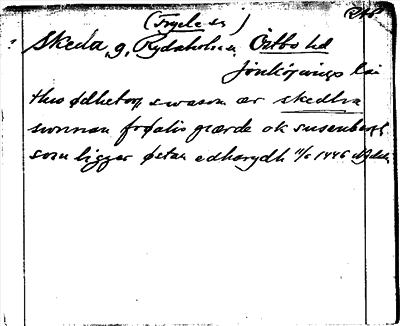 (Tryele ss)
? Skeda, g, Rydaholm, Östbo hd
Jönköpings län
thw ødhetorp swasom ær skedha
swnnan frøalis giærde ok susenbergh
som ligger østan edharydh 11/6 1446